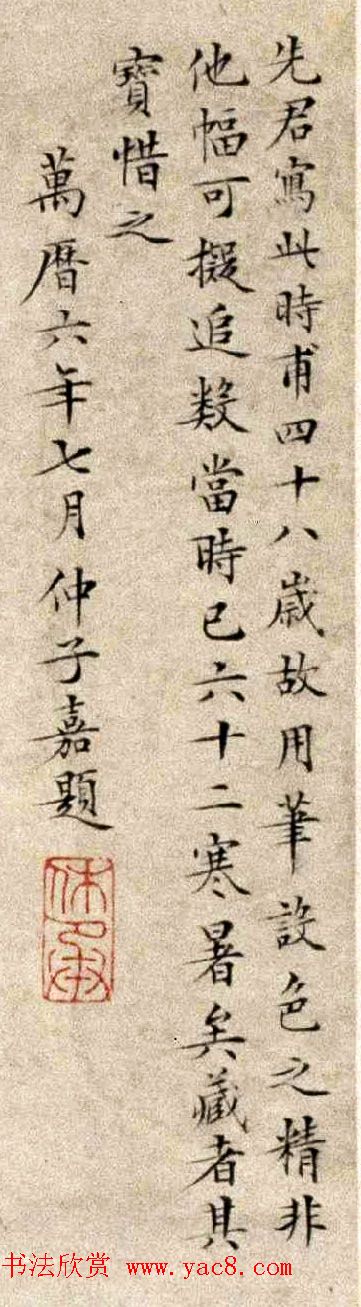 先君寫此時甫四十八歲故用筆設色之精非
他幅可擬追數當時已六十二寒暑矣藏者其
寶惜之
萬曆六年七月仲子嘉題
休承
书法欣赏 www.yac8.com